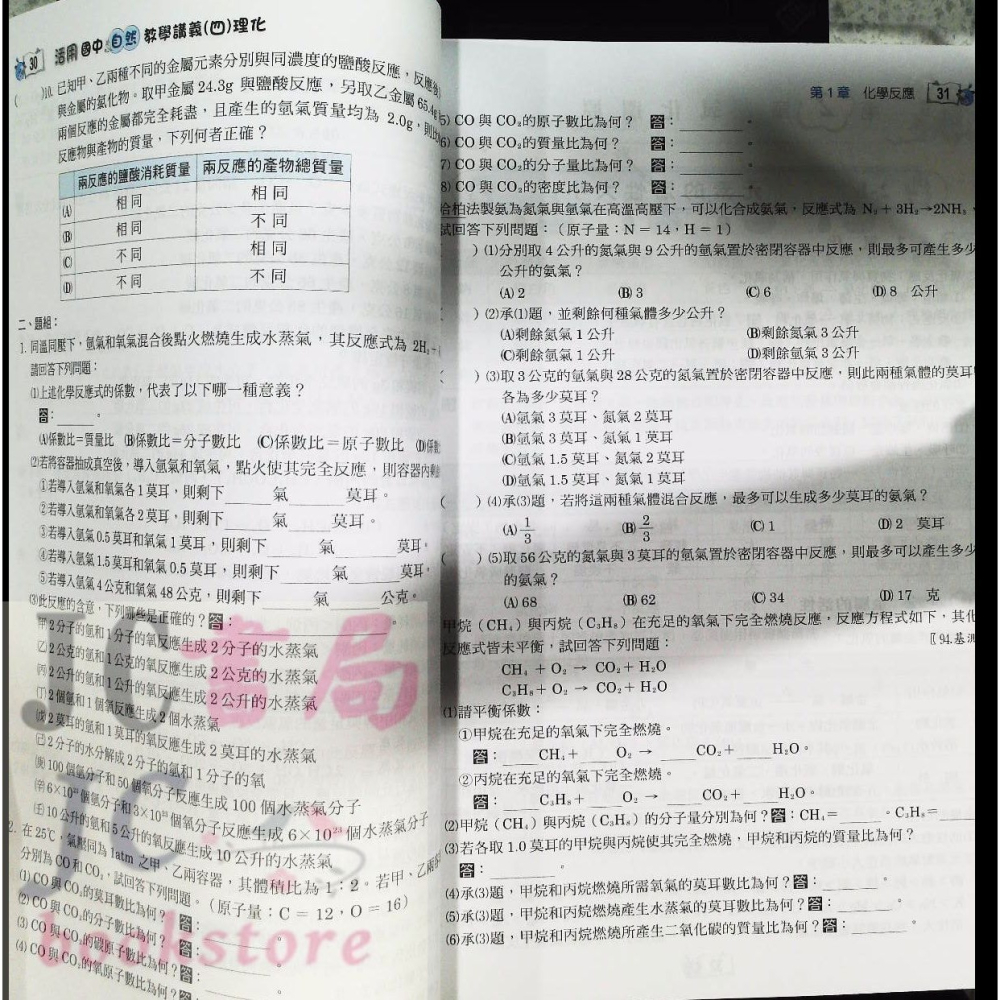 30 活用國中自然教學講義(四)理化
( )10. 已知甲、乙兩種不同的金屬元素分別與同濃度的鹽酸反應，反應後
與金屬的氯化物。取甲金屬 24.3g 與鹽酸反應，另取乙金屬 65.4g
兩個反應的金屬都完全耗盡，且產生的氫氣質量均為 2.0g，則
反應物與產物的質量，下列何者正確？
兩反應的鹽酸消耗質量 兩反應的產物總質量
(A) 相同 相同
(B) 相同 不同
(C) 不同 相同
(D) 不同 不同
二、題組：
1. 同溫同壓下，氫氣和氧氣混合後點火燃燒生成水蒸氣，其反應式為 2H₂+
請回答下列問題：
(1)上述化學反應式的係數，代表了以下哪一種意義？
答：______。
(A)係數比＝質量比 (B)係數比＝分子數比 (C)係數比＝原子數比 (D)係數
(2)若將容器抽成真空後，導入氫氣和氧氣，點火使其完全反應，則容器內
①若導入氫氣和氧氣各 1 莫耳，則剩下______氣______莫耳。
②若導入氫氣和氧氣各 2 莫耳，則剩下______氣______莫耳。
③若導入氫氣 0.5 莫耳和氧氣 1 莫耳，則剩下______氣______莫耳。
④若導入氫氣 1.5 莫耳和氧氣 0.5 莫耳，則剩下______氣______莫耳。
⑤若導入氫氣 4 公克和氧氣 48 公克，則剩下______氣______公克。
(3)此反應的含意，下列哪些是正確的？答：______。
(甲) 2 分子的氫和 1 分子的氧反應生成 2 分子的水蒸氣
(乙) 2 公克的氫和 1 公克的氧反應生成 2 公克的水蒸氣
(丙) 2 公升的氫和 1 公升的氧反應生成 2 公升的水蒸氣
(丁) 2 個氫和 1 個氧反應生成 2 個水蒸氣
(戊) 2 莫耳的氫和 1 莫耳的氧反應生成 2 莫耳的水蒸氣
(己) 2 分子的水分解成 2 分子的氫和 1 分子的氧
(庚) 100 個氫分子和 50 個氧分子反應生成 100 個水蒸氣分子
(辛) 6×10²³ 個氫分子和 3×10²³ 個氧分子反應生成 6×10²³ 個水蒸氣分子
(壬) 10 公升的氫和 5 公升的氧反應生成 10 公升的水蒸氣
2. 在 25℃，氣壓同為 1atm 之甲、乙兩容器，其體積比為 1：2。若甲、乙兩
分別為 CO 和 CO₂，試回答下列問題。（原子量：C = 12，O = 16）
(1) CO 與 CO₂的莫耳數比為何？答：______。
(2) CO 與 CO₂的分子數比為何？答：______。
(3) CO 與 CO₂的碳原子數比為何？答：______。
(4) CO 與 CO₂的氧原子數比為何？答：
JC書局
JC
bookstore
第 1 章 化學反應 31
5) CO 與 CO₂的原子數比為何？ 答：______。
6) CO 與 CO₂的質量比為何？ 答：______。
7) CO 與 CO₂的分子量比為何？ 答：______。
8) CO 與 CO₂的密度比為何？ 答：______。
哈柏法製氨為氮氣與氫氣在高溫高壓下，可以化合成氨氣，反應式為 N₂＋3H₂→2NH₃，
試回答下列問題：（原子量：N = 14，H = 1）
) (1)分別取 4 公升的氮氣與 9 公升的氫氣置於密閉容器中反應，則最多可產生多少
公升的氨氣？
(A) 2 (B) 3 (C) 6 (D) 8 公升
) (2)承(1)題，並剩餘何種氣體多少公升？
(A)剩餘氮氣 1 公升 (B)剩餘氮氣 3 公升
(C)剩餘氫氣 1 公升 (D)剩餘氫氣 3 公升
( ) (3)取 3 公克的氫氣與 28 公克的氮氣置於密閉容器中反應，則此兩種氣體的莫耳
各為多少莫耳？
(A)氫氣 3 莫耳、氮氣 2 莫耳
(B)氫氣 3 莫耳、氮氣 1 莫耳
(C)氫氣 1.5 莫耳、氮氣 2 莫耳
(D)氫氣 1.5 莫耳、氮氣 1 莫耳
( ) (4)承(3)題，若將這兩種氣體混合反應，最多可以生成多少莫耳的氨氣？
(A) 1/3 (B) 2/3 (C) 1 (D) 2 莫耳
( ) (5)取 56 公克的氮氣與 3 莫耳的氫氣置於密閉容器中反應，則最多可以產生多少
的氨氣？
(A) 68 (B) 62 (C) 34 (D) 17 克
甲烷（CH₄）與丙烷（C₃H₈）在充足的氧氣下完全燃燒反應，反應方程式如下，其化
反應式皆未平衡，試回答下列問題： 〖94.基測
CH₄＋O₂ → CO₂＋H₂O
C₃H₈＋O₂ → CO₂＋H₂O
(1)請平衡係數：
①甲烷在充足的氧氣下完全燃燒。
答：____CH₄＋____O₂ →____CO₂＋____H₂O。
②丙烷在充足的氧氣下完全燃燒。
答：____C₃H₈＋____O₂ →____CO₂＋____H₂O。
(2)甲烷（CH₄）與丙烷（C₃H₈）的分子量分別為何？答：CH₄＝______。C₃H₈＝____
(3)若各取 1.0 莫耳的甲烷與丙烷使其完全燃燒，甲烷和丙烷的質量比為何？
答：________。
(4)承(3)題，甲烷和丙烷燃燒所需氧氣的莫耳數比為何？答：______。
(5)承(3)題，甲烷和丙烷燃燒產生水蒸氣的莫耳數比為何？答：______。
(6)承(3)題，甲烷和丙烷燃燒所產生二氧化碳的質量比為何？答：______。